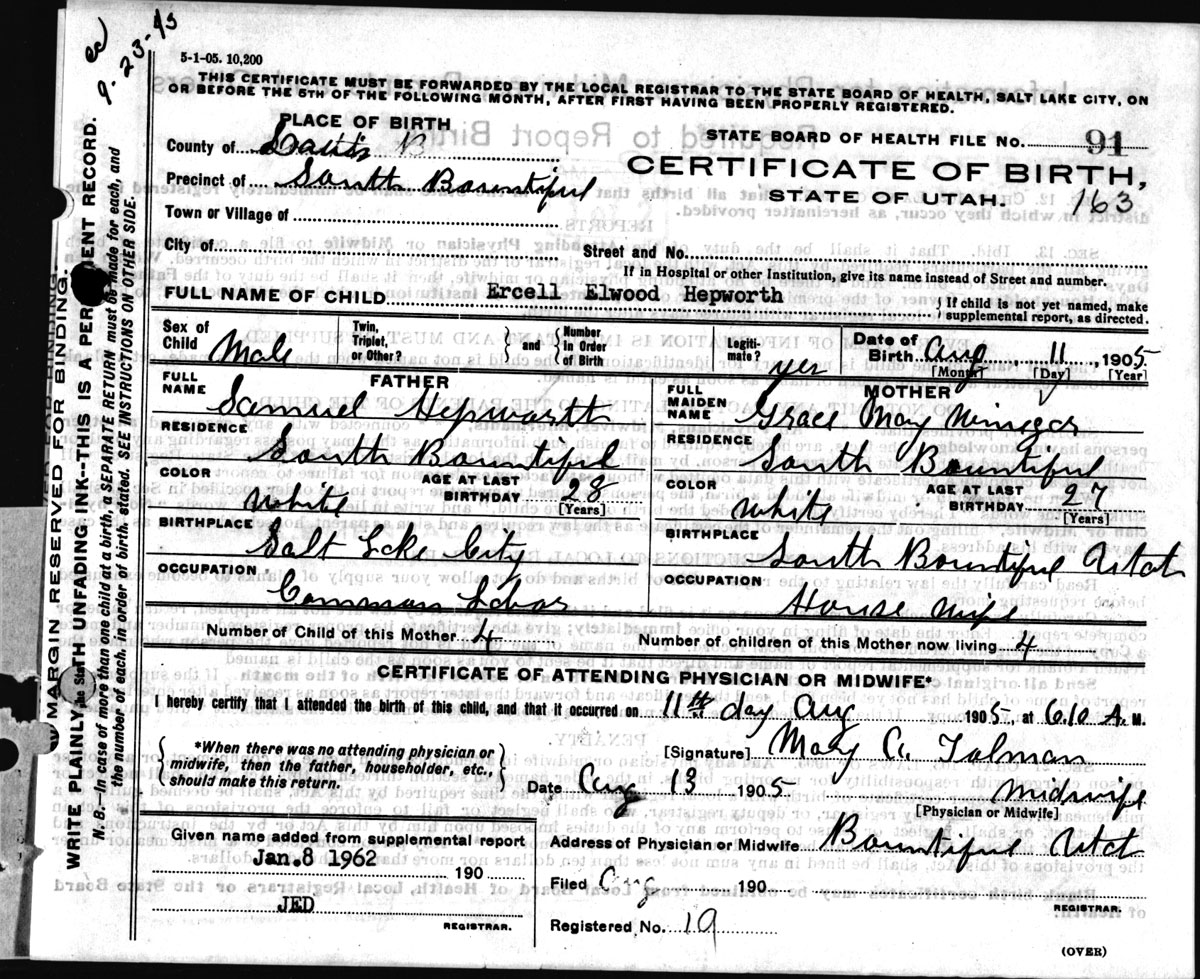 9-23-43
5-1-05. 10,200
THIS CERTIFICATE MUST BE FORWARDED BY THE LOCAL REGISTRAR TO THE STATE BOARD OF HEALTH, SALT LAKE CITY, ON
OR BEFORE THE 5TH OF THE FOLLOWING MONTH, AFTER FIRST HAVING BEEN PROPERLY REGISTERED.
PLACE OF BIRTH
STATE BOARD OF HEALTH FILE NO. 91
County of Davis
CERTIFICATE OF BIRTH,
Precinct of South Bountiful
STATE OF UTAH. 163
Town or Village of
City of Street and No.
If in Hospital or other Institution, give its name instead of Street and number.
FULL NAME OF CHILD Ercell Elwood Hepworth { If child is not yet named, make supplemental report, as directed.
Sex of Child Male Twin, Triplet, or Other? } and { Number in Order of Birth Legiti-mate? yes Date of Birth Aug 11, 1905
[Month] [Day] [Year]
FATHER MOTHER
FULL NAME Samuel Hepworth FULL MAIDEN NAME Grace May Winegar
RESIDENCE South Bountiful RESIDENCE South Bountiful
COLOR White AGE AT LAST BIRTHDAY 28 [Years] COLOR White AGE AT LAST BIRTHDAY 27 [Years]
BIRTHPLACE Salt Lake City BIRTHPLACE South Bountiful Utah
OCCUPATION Common Labor OCCUPATION House Wife
Number of Child of this Mother 4 Number of children of this Mother now living 4
CERTIFICATE OF ATTENDING PHYSICIAN OR MIDWIFE*
I hereby certify that I attended the birth of this child, and that it occurred on 11th day Aug 1905, at 6.10 A. M.
{ *When there was no attending physician or midwife, then the father, householder, etc., should make this return. }
[Signature] Mary A. Tolman
Date Aug 13 1905 Midwife
[Physician or Midwife]
Given name added from supplemental report
Address of Physician or Midwife Bountiful Utah
Jan. 8 1962 190
Filed Aug 190
JED
REGISTRAR.
REGISTRAR.
Registered No. 19
(OVER)
MARGIN RESERVED FOR BINDING.
WRITE PLAINLY WITH UNFADING INK--THIS IS A PERMANENT RECORD.
N. B.--In case of more than one child at a birth, a SEPARATE RETURN must be made for each, and
the number of each, in order of birth, stated. SEE INSTRUCTIONS ON OTHER SIDE.